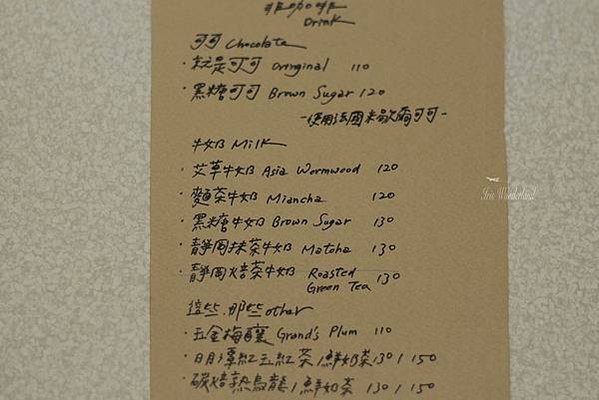 非咖啡
Drink
可可 Chocolate
· 就是可可 Oringinal 110
· 黑糖可可 Brown Sugar 120
-使用法國米歇爾可可-
牛奶 Milk
· 艾草牛奶 Asia Wormwood 120
· 麵茶牛奶 Miancha 120
· 黑糖牛奶 Brown Sugar 130
· 靜岡抹茶牛奶 Matcha 130
· 靜岡焙茶牛奶 Roasted Green Tea 130
這些.那些 other
· 五金梅釀 Grand's Plum 110
· 日月潭紅玉紅茶/鮮奶茶 130/150
· 碳焙熟烏龍/鮮奶茶 130/150
Iris Wonderland